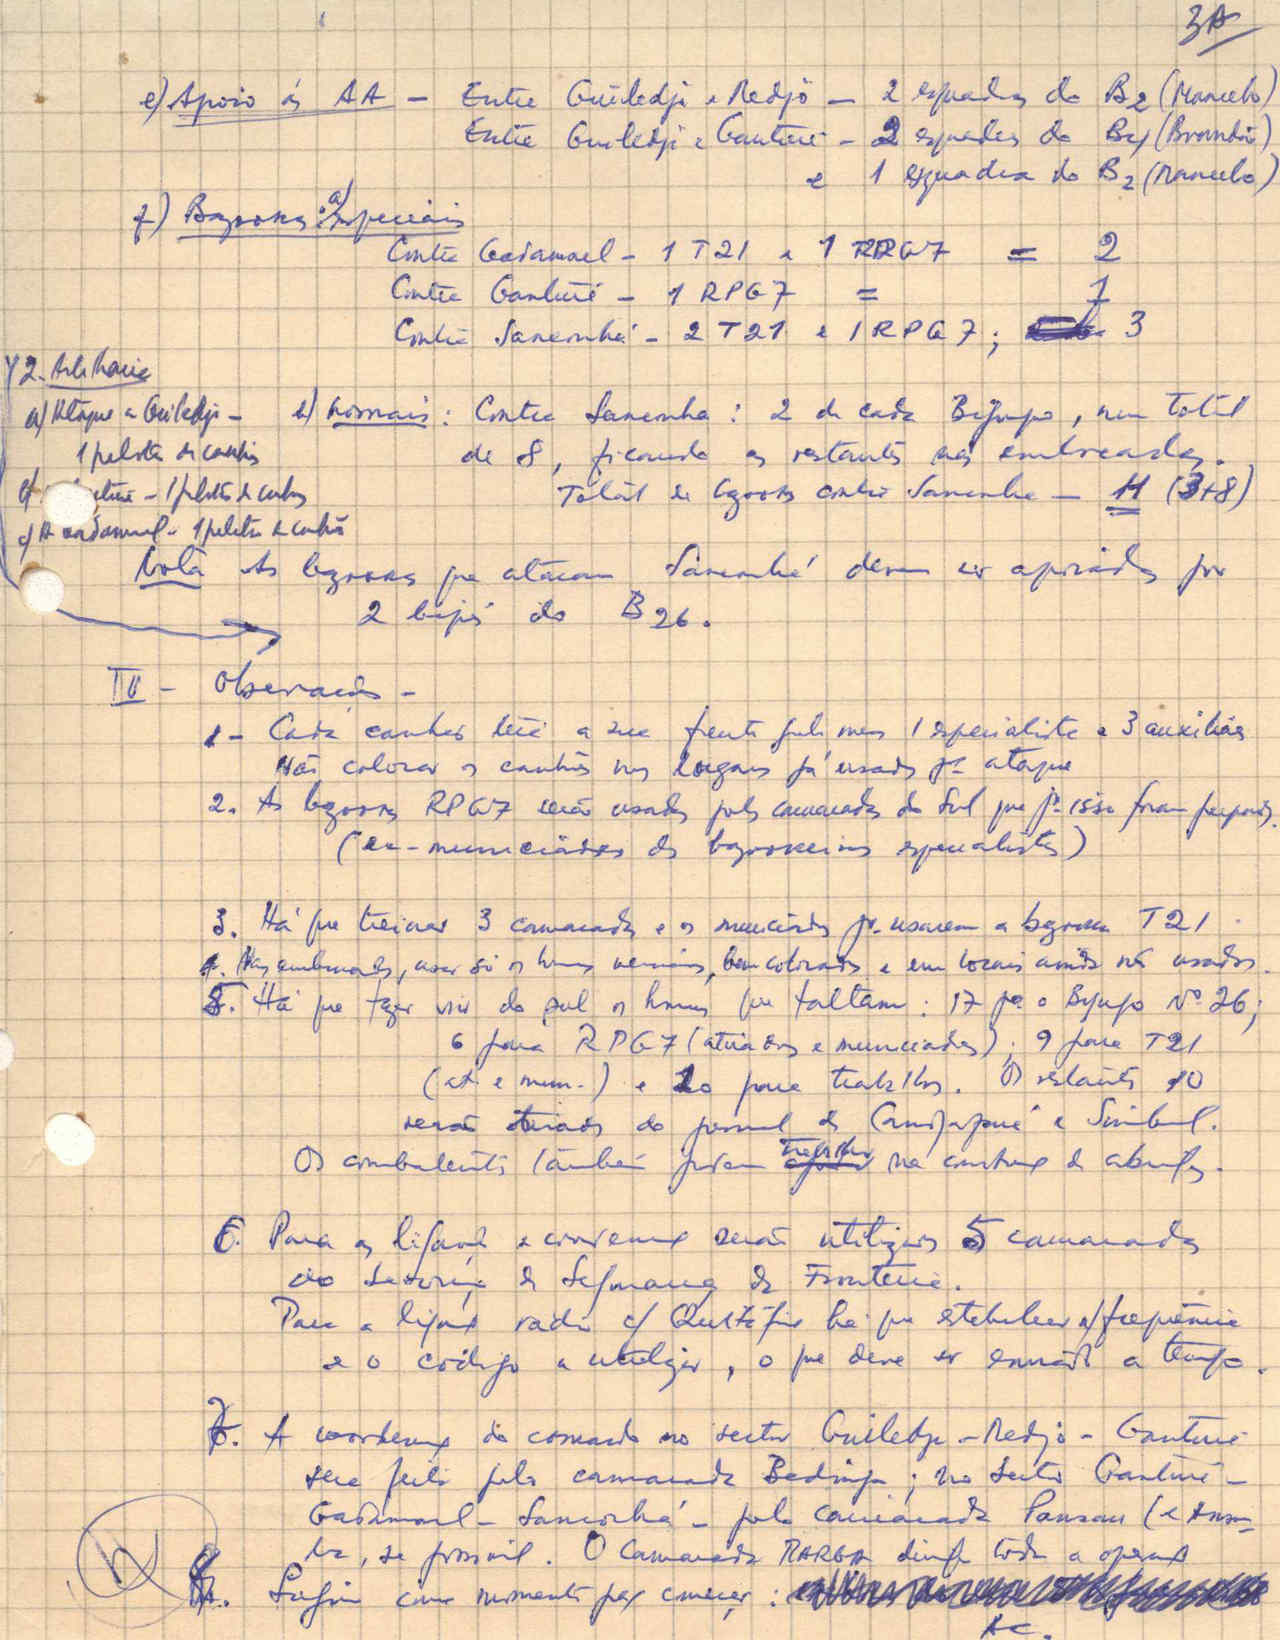 3A
e) Apoio ás AA — Entre Guiledji e Medjô — 2 esquadras do B2 (Marcelo)
Entre Guiledji e Ganturé — 2 esquadras do B4 (Brandão)
e 1 esquadra do B2 (Marcelo)
f) Bazookas: a) Especiais
Contra Gadamael - 1 T21 e 1 RPG7 = 2
Contra Ganturé - 1 RPG7 = 1
Contra Sanconhá - 2 T21 e 1 RPG7; 3
2. Artilharia
a) Ataque a Guiledji -
1 pelotão de canhões
- 1 pelotão de canhões
c) A Gadamael - 1 pelotão de canhões
b) normais: Contra Sanconha: 2 de cada Bigrupo, num total
de 8, ficando os restantes nas emboscadas.
Total de bazookas contra Sanconha — 11 (3+8)
Nota As bazookas que atacam Sanconhá devem ser apoiadas por
2 do B26.
IV - Observações -
1 - Cada canhão terá a sua frente pelo menos 1 especialista e 3 auxiliares
Não colocar os canhões nos lugares já usados pa ataque
2. As bazookas RPG7 serão usadas pelos camaradas do Sul que pa isso foram preparados.
(ex-municiadores dos bazookeiros especialistas)
3. Há que treinar 3 camaradas e os municiadores pa usarem a bazooka T21
4. Nas emboscadas, usar só os homens necessários, bem colocados e em locais ainda não usados.
5. Há que fazer vir do sul os homens que faltam: 17 pa o Bigrupo Nº 26;
6 para RPG7 (atiradores e municiadores); 9 para T21
(at. e mun.) e 20 para trabalhos. Os restantes 10
serão tirados do pessoal de Candjafara e Simbul.
Os combatentes também devem trabalhar na construção de abrigos.
6. Para as ligações e coordenação serão utilizados 5 camaradas
do Serviço de Segurança da Fronteira.
Para a ligação radio c/ Quitáfine há que estabelecer a frequência
e o código a utilizar, o que deve ser enviado a tempo.
7. A coordenação do comando no sector Guiledje - Medjô - Ganturé
será feita pelo camarada Bedinga; no sector Ganturé -
Gadamael - Sanconhá - pelo camarada Pansau (e
, se possível. O camarada MARGA dirige toda a operação
8. Sugiro como momento para começar:
AC.